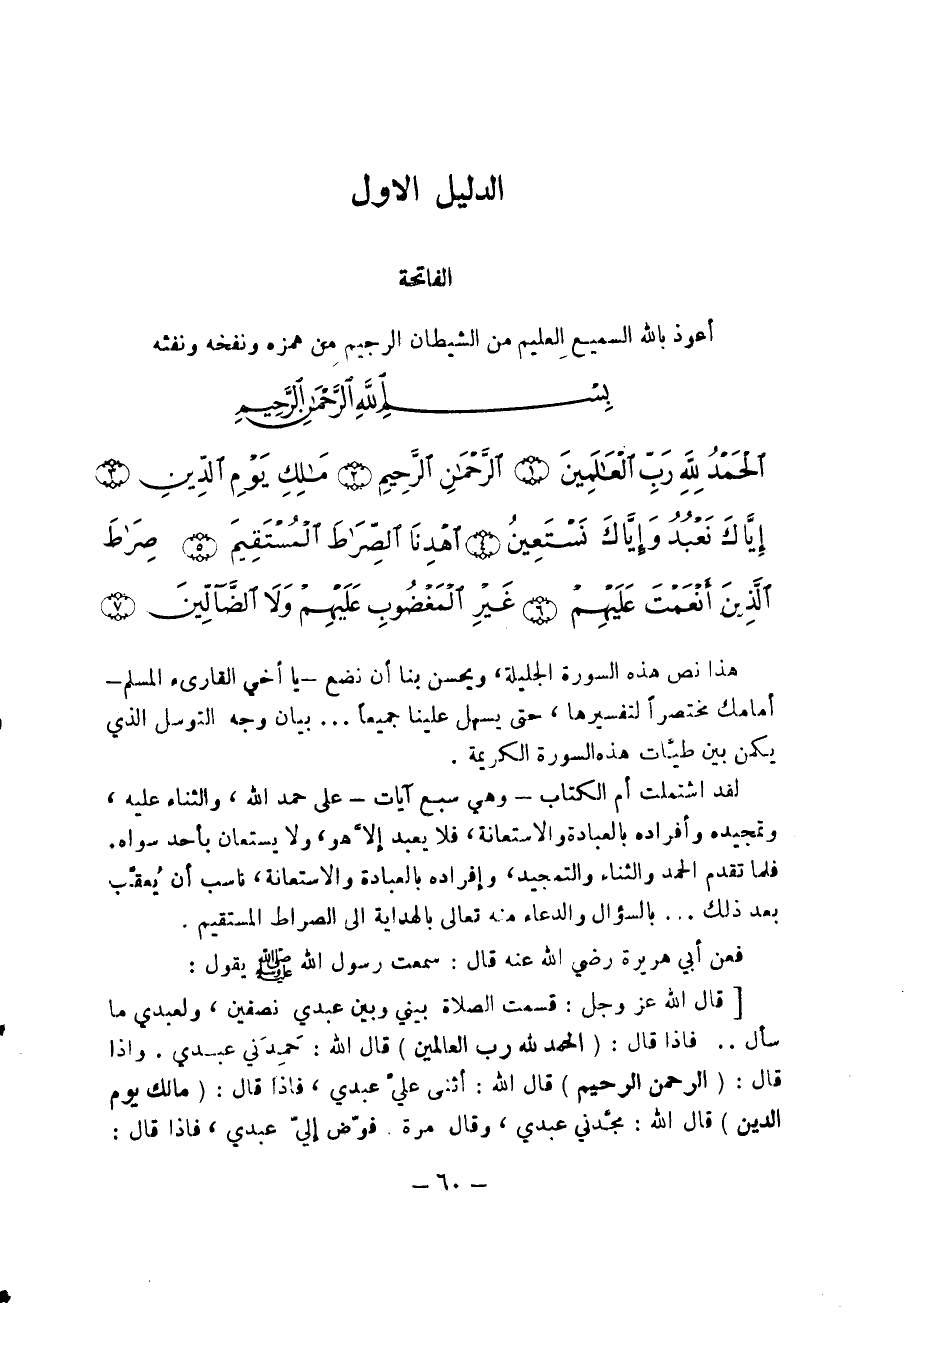 الدليل الاول
الفاتحة
أعوذ بالله السميع العليم من الشيطان الرجيم من همزه ونفخه ونفثه
بِسْمِ ٱللَّهِ ٱلرَّحْمَٰنِ ٱلرَّحِيمِ
ٱلْحَمْدُ لِلَّهِ رَبِّ ٱلْعَٰلَمِينَ ١ ٱلرَّحْمَٰنِ ٱلرَّحِيمِ ٢ مَٰلِكِ يَوْمِ ٱلدِّينِ ٣
إِيَّاكَ نَعْبُدُ وَإِيَّاكَ نَسْتَعِينُ ٤ ٱهْدِنَا ٱلصِّرَٰطَ ٱلْمُسْتَقِيمَ ٥ صِرَٰطَ
ٱلَّذِينَ أَنْعَمْتَ عَلَيْهِمْ ٦ غَيْرِ ٱلْمَغْضُوبِ عَلَيْهِمْ وَلَا ٱلضَّآلِّينَ ٧
هذا نص هذه السورة الجليلة، ويحسن بنا أن نضع –يا أخي القارىء المسلم–
أمامك مختصراً لتفسيرها ، حتى يسهل علينا جميعاً ... بيان وجه التوسل الذي
يكمن بين طيّات هذه السورة الكريمة .
لقد اشتملت أم الكتاب – وهي سبع آيات – على حمد الله ، والثناء عليه ،
وتمجيده وأفراده بالعبادة والاستعانة، فلا يعبد إلاّ هو، ولا يستعان بأحد سواه.
فلما تقدم الحمد والثناء والتمجيد، وإفراده بالعبادة والاستعانة، ناسب أن يُعقّب
بعد ذلك ... بالسؤال والدعاء منه تعالى بالهداية الى الصراط المستقيم .
فعن أبي هريرة رضي الله عنه قال : سمعت رسول الله ﷺ يقول :
[ قال الله عز وجل : قسمت الصلاة بيني وبين عبدي نصفين ، ولعبدي ما
سأل .. فاذا قال : ( الحمد لله رب العالمين ) قال الله : حَمِدَني عبدي . واذا
قال : ( الرحمن الرحيم ) قال الله : أثنى عليّ عبدي ، فاذا قال : ( مالك يوم
الدين ) قال الله : مجّدني عبدي ، وقال مرة . فوّض إليّ عبدي ، فاذا قال :
– ٦٠ –